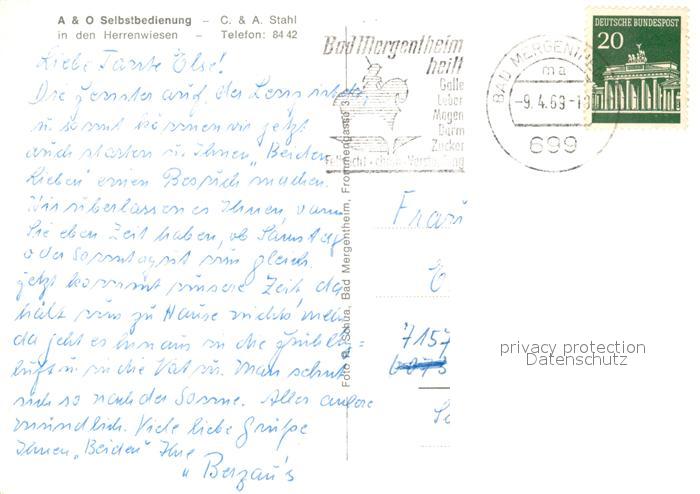 A & O Selbstbedienung – C. & A. Stahl
in den Herrenwiesen – Telefon: 84 42
Liebe Tante Else!
Die Fenster auf der
u. somit können wir jetzt
auch starten u. Ihnen „Beiden
Lieben" einen Besuch machen.
Wir überlassen es Ihnen, wann
Sie eben Zeit haben, ob Samstag
oder Sonntag ist uns gleich.
jetzt kommt unsere Zeit, da
hält uns zu Hause nichts mehr
da geht es hinaus in die
luft u. in die Natur. Man sehnt
sich so nach der Sonne. Alles andere
mündlich. Viele liebe Grüße
Ihnen „Beiden" Ihre
Berzau's
Foto R. Schua, Bad Mergentheim, Frommengasse 3
Bad Mergentheim
heilt
Galle
Leber
Magen
Darm
Zucker
BAD MERGENTHEIM
ma
-9.4.69-
699
DEUTSCHE BUNDESPOST
20
Frau
7157
privacy protection
Datenschutz